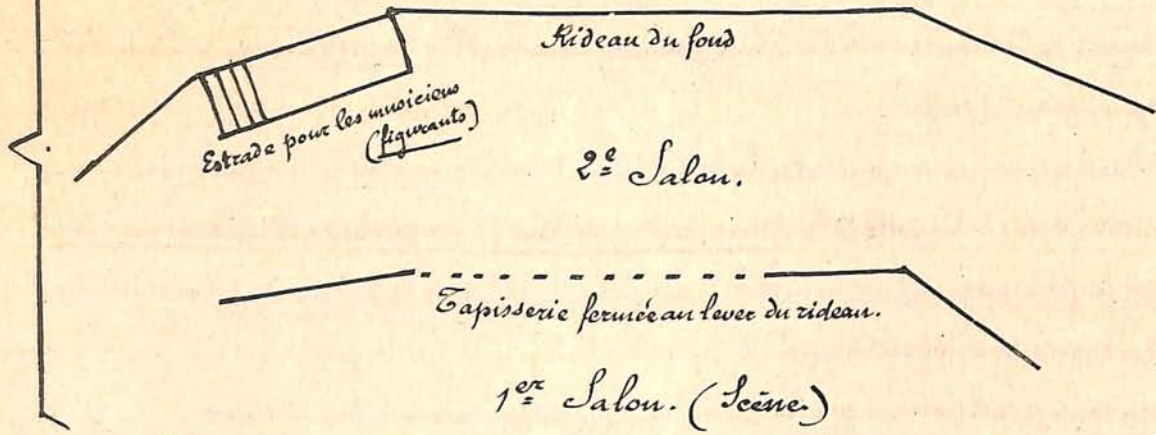 Rideau du fond
Estrade pour les musiciens
(figurants)
2e Salon.
Tapisserie fermée au lever du rideau.
1er Salon. (Scène.)